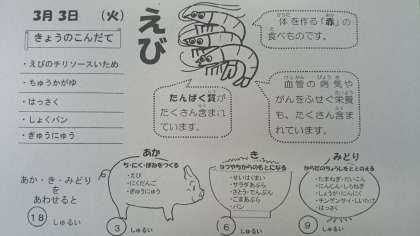 3月3日 （火）
きょうのこんだて
・えびのチリソースいため
・ちゅうかがゆ
・はっさく
・しょくパン
・ぎゅうにゅう
えび
体を作る「赤」の
食べものです。
たんぱく質が
たくさん含まれ
ています。
血管の病気や
がんをふせぐ栄養
も、たくさん含まれ
ています。
あか・き・みどり
を
あわせると
18 しゅるい
あか
ち・にく・ほねをつくる
・えび
・にくだんご
・ぎゅうにゅう
3 しゅるい
き
・せいはくまい
・サラダあぶら
・さとう・でんぷん
・ごまあぶら
・パン
6 しゅるい
みどり
からだのちょうしをととのえる
・たまねぎ・だいこん
・にんじん・しろねぎ
・しょうが・にんにく
・チンゲンサイ・しいたけ
・はっさく
9 しゅるい